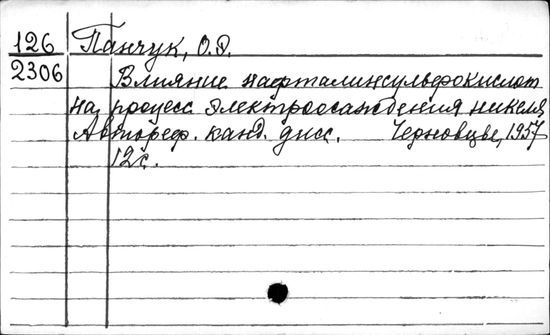 126 Панчук, О.Д.
2306 Влияние нафталинсульфокислот
на процесс электроосаждения никеля
Автореф. канд. дисс. Черновцы, 1957
12с.